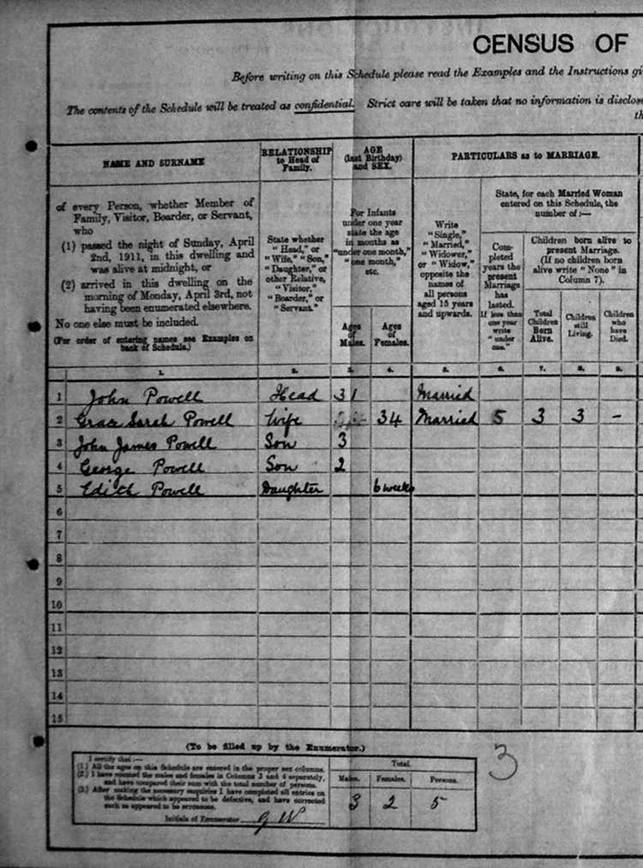 CENSUS OF
Before writing on this Schedule please read the Examples and the Instructions gi
The contents of the Schedule will be treated as confidential. Strict care will be taken that no information is disclos
th
NAME AND SURNAME
RELATIONSHIP to Head of Family.
AGE (last Birthday) and SEX.
PARTICULARS as to MARRIAGE.
of every Person, whether Member of
Family, Visitor, Boarder, or Servant,
who
(1) passed the night of Sunday, April
2nd, 1911, in this dwelling and
was alive at midnight, or
(2) arrived in this dwelling on the
morning of Monday, April 3rd, not
having been enumerated elsewhere.
No one else must be included.
(For order of entering names see Examples on
back of Schedule.)
State whether
"Head," or
"Wife," "Son,"
"Daughter," or
other Relative,
"Visitor,"
"Boarder," or
"Servant."
For Infants
under one year
state the age
in months as
"under one month,"
"one month,"
etc.
Ages of Males.
Ages of Females.
Write
"Single,"
"Married,"
"Widower,"
or "Widow,"
opposite the
names of
all persons
aged 15 years
and upwards.
State, for each Married Woman
entered on this Schedule, the
number of:—
Completed
years the
present
Marriage
has
lasted.
If less than
one year
write
"under
one."
Children born alive to
present Marriage.
(If no children born
alive write "None" in
Column 7).
Total Children Born Alive.
Children still Living.
Children who have Died.
1. 2. 3. 4. 5. 6. 7. 8. 9.
1 John Powell Head 31 Married
2 Grace Sarah Powell Wife 34 Married 5 3 3 -
3 John James Powell Son 3
4 George Powell Son 2
5 Edith Powell Daughter 6 weeks
6
7
8
9
10
11
12
13
14
15
(To be filled up by the Enumerator.)
I certify that:—
(1.) All the ages on this Schedule are entered in the proper sex columns.
(2.) I have counted the males and females in Columns 3 and 4 separately,
and have compared their sum with the total number of persons.
(3.) After making the necessary enquiries I have completed all entries on
the Schedule which appeared to be defective, and have corrected
such as appeared to be erroneous.
Initials of Enumerator
Total.
Males. Females. Persons.
3 2 5
3